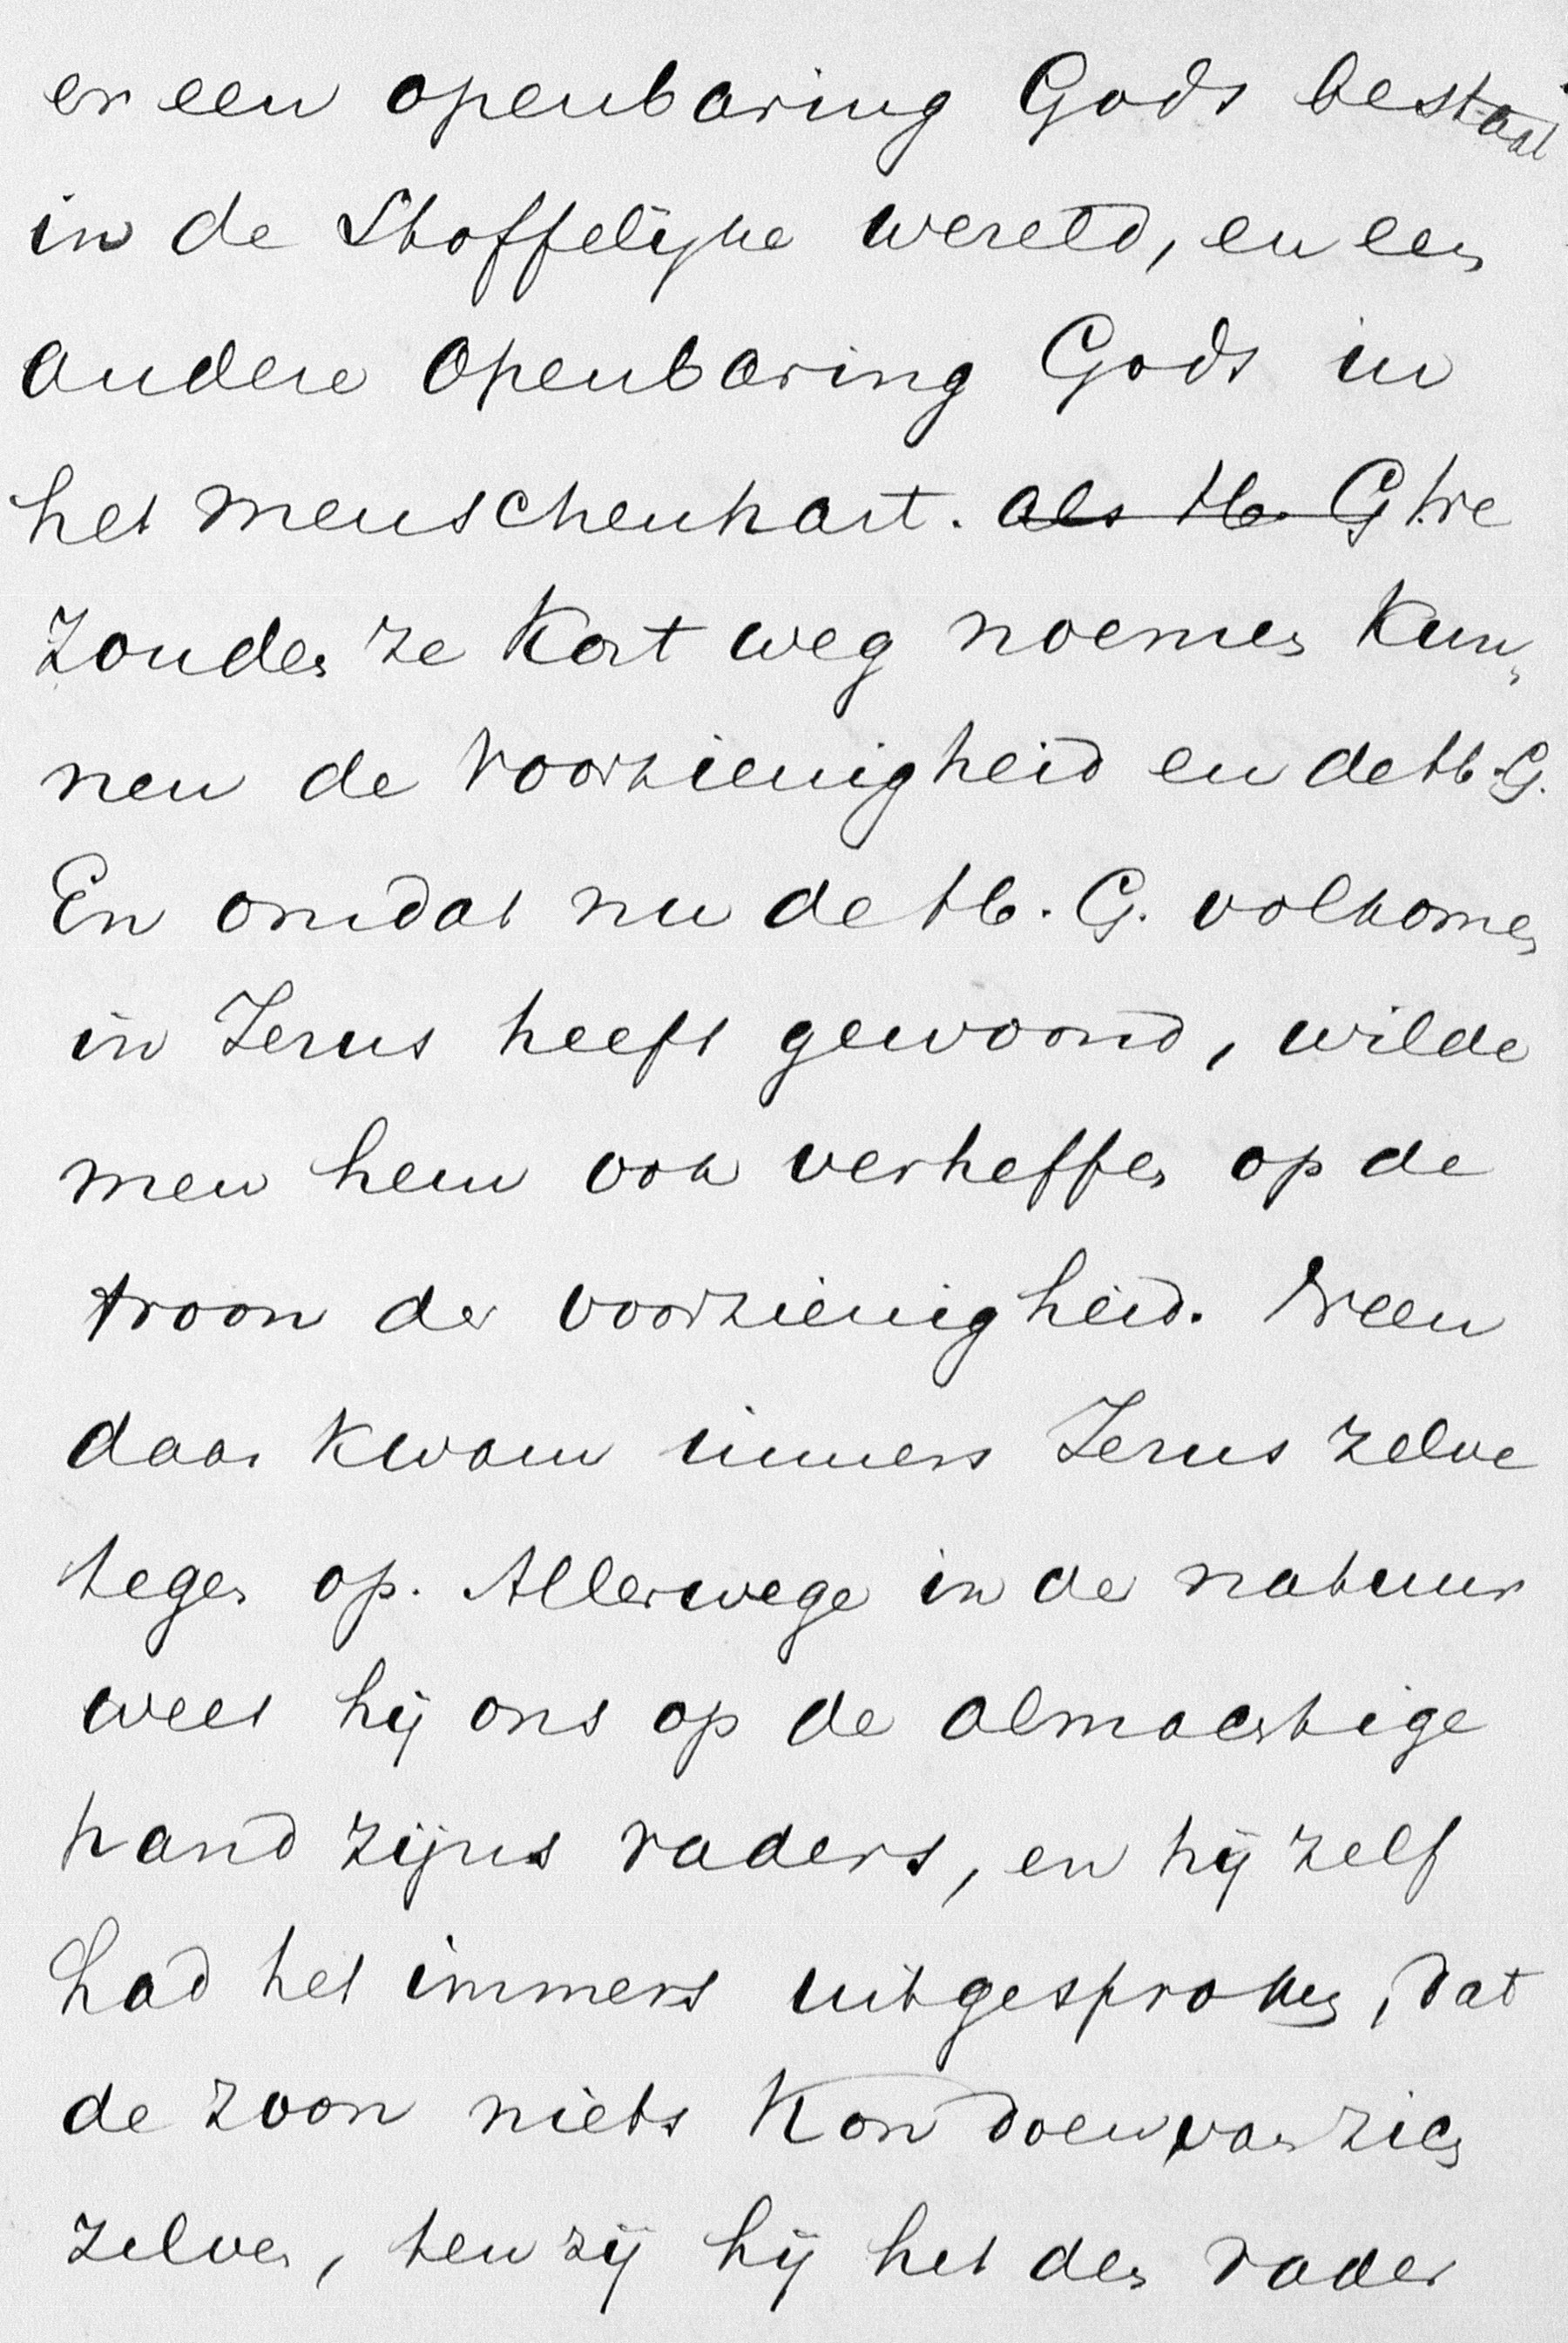 er een openbaring Gods bestaat
in de Stoffelijke wereld, en een
andere openbaring Gods in
het menschenhart. als H. G We
zouden ze kort weg noemen kun„
nen de voorzienigheid en de H. G.
En omdat nu de H. G. volkomen
in Jezus heeft gewoond, wilde
men hem ook verheffen op de
troon der voorzienigheid. Neen
daar kwam immers Jezus zelve
tegen op. Allerwege in de natuur
wees hij ons op de almachtige
hand zijns vaders, en hij zelf
had het immers uitgesproken, dat
de zoon niets kon doen van zich
zelven, ten zij hij het den vader